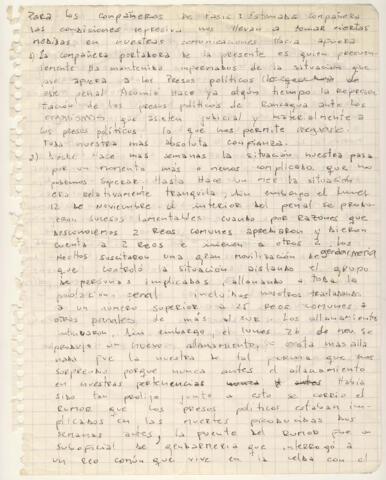 Para los compañeros de Fasic: Estimada compañera
las condiciones represivas nos llevan a tomar ciertas
medidas en nuestras comunicaciones hacia afuera
1) La compañera portadora de la presente es quien frecuen
temente ha mantenido informados de la situación que
que afecta a los Presos políticos de
ese penal Asumió hace ya algún tiempo la represen
tación de los presos políticos de Rancagua ante los
organismos que asisten judicial y materialmente a
los presos políticos lo que nos permite
toda nuestra mas absoluta confianza.
2) Desde hace mas semanas la situación nuestra pasa
por un momento mas o menos complicado que no
podemos superar. Hasta hace un mes la situación
era relativamente tranquila, sin embargo el lunes
12 de Noviembre al interior del penal se produ
jeron sucesos lamentables cuando por razones que
desconocemos 2 Reos comunes apuñalaron y dieron
cuenta a 2 reos e hirieron a otros 2 los
hechos suscitaron una gran movilización de gendarmería
que controló la situación aislando el grupo
de personas implicadas, allanando a toda la
población penal incluidos nosotros trasladando
a un número superior a 25 reos comunes a
otros penales de más al sur. Los allanamientos
continuaron. Sin embargo, el lunes 26 de nov. se
produjo un nuevo allanamiento, esta mas alla
nada fue la nuestra de tal forma que nos
sorprendió porque nunca antes el allanamiento
en nuestras pertenencias había
sido tan prolijo junto a esto se corrió el
rumor que los presos políticos estaban im
plicados en las muertes producidas dos
semanas antes, la fuente del rumor fue un
suboficial de gendarmería que interrogó a
un reo común que vive en la celda con el